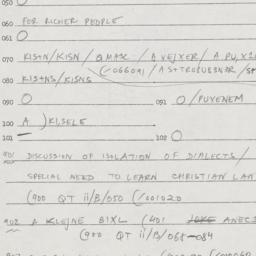 050 O
060 FOR RICHER PEOPLE
061 O
070 KISTN / KISN / QMASC / A VEJXER / A
(066091 / ASTROBUBSNER /
080 KISTNS / KISNS
090 O 091 O / PUYENEM
100 A ) KISELE
101 — 102 O
901 DISCUSSION OF ISOLATION OF DIALECTS /
SPECIAL NEED TO LEARN CHRISTIAN LAN
(900 QT ii/B/050 (/001020
902 A KLEJNE BIXL (401 JOKE ANEC
(900 QT ii/B/068-084